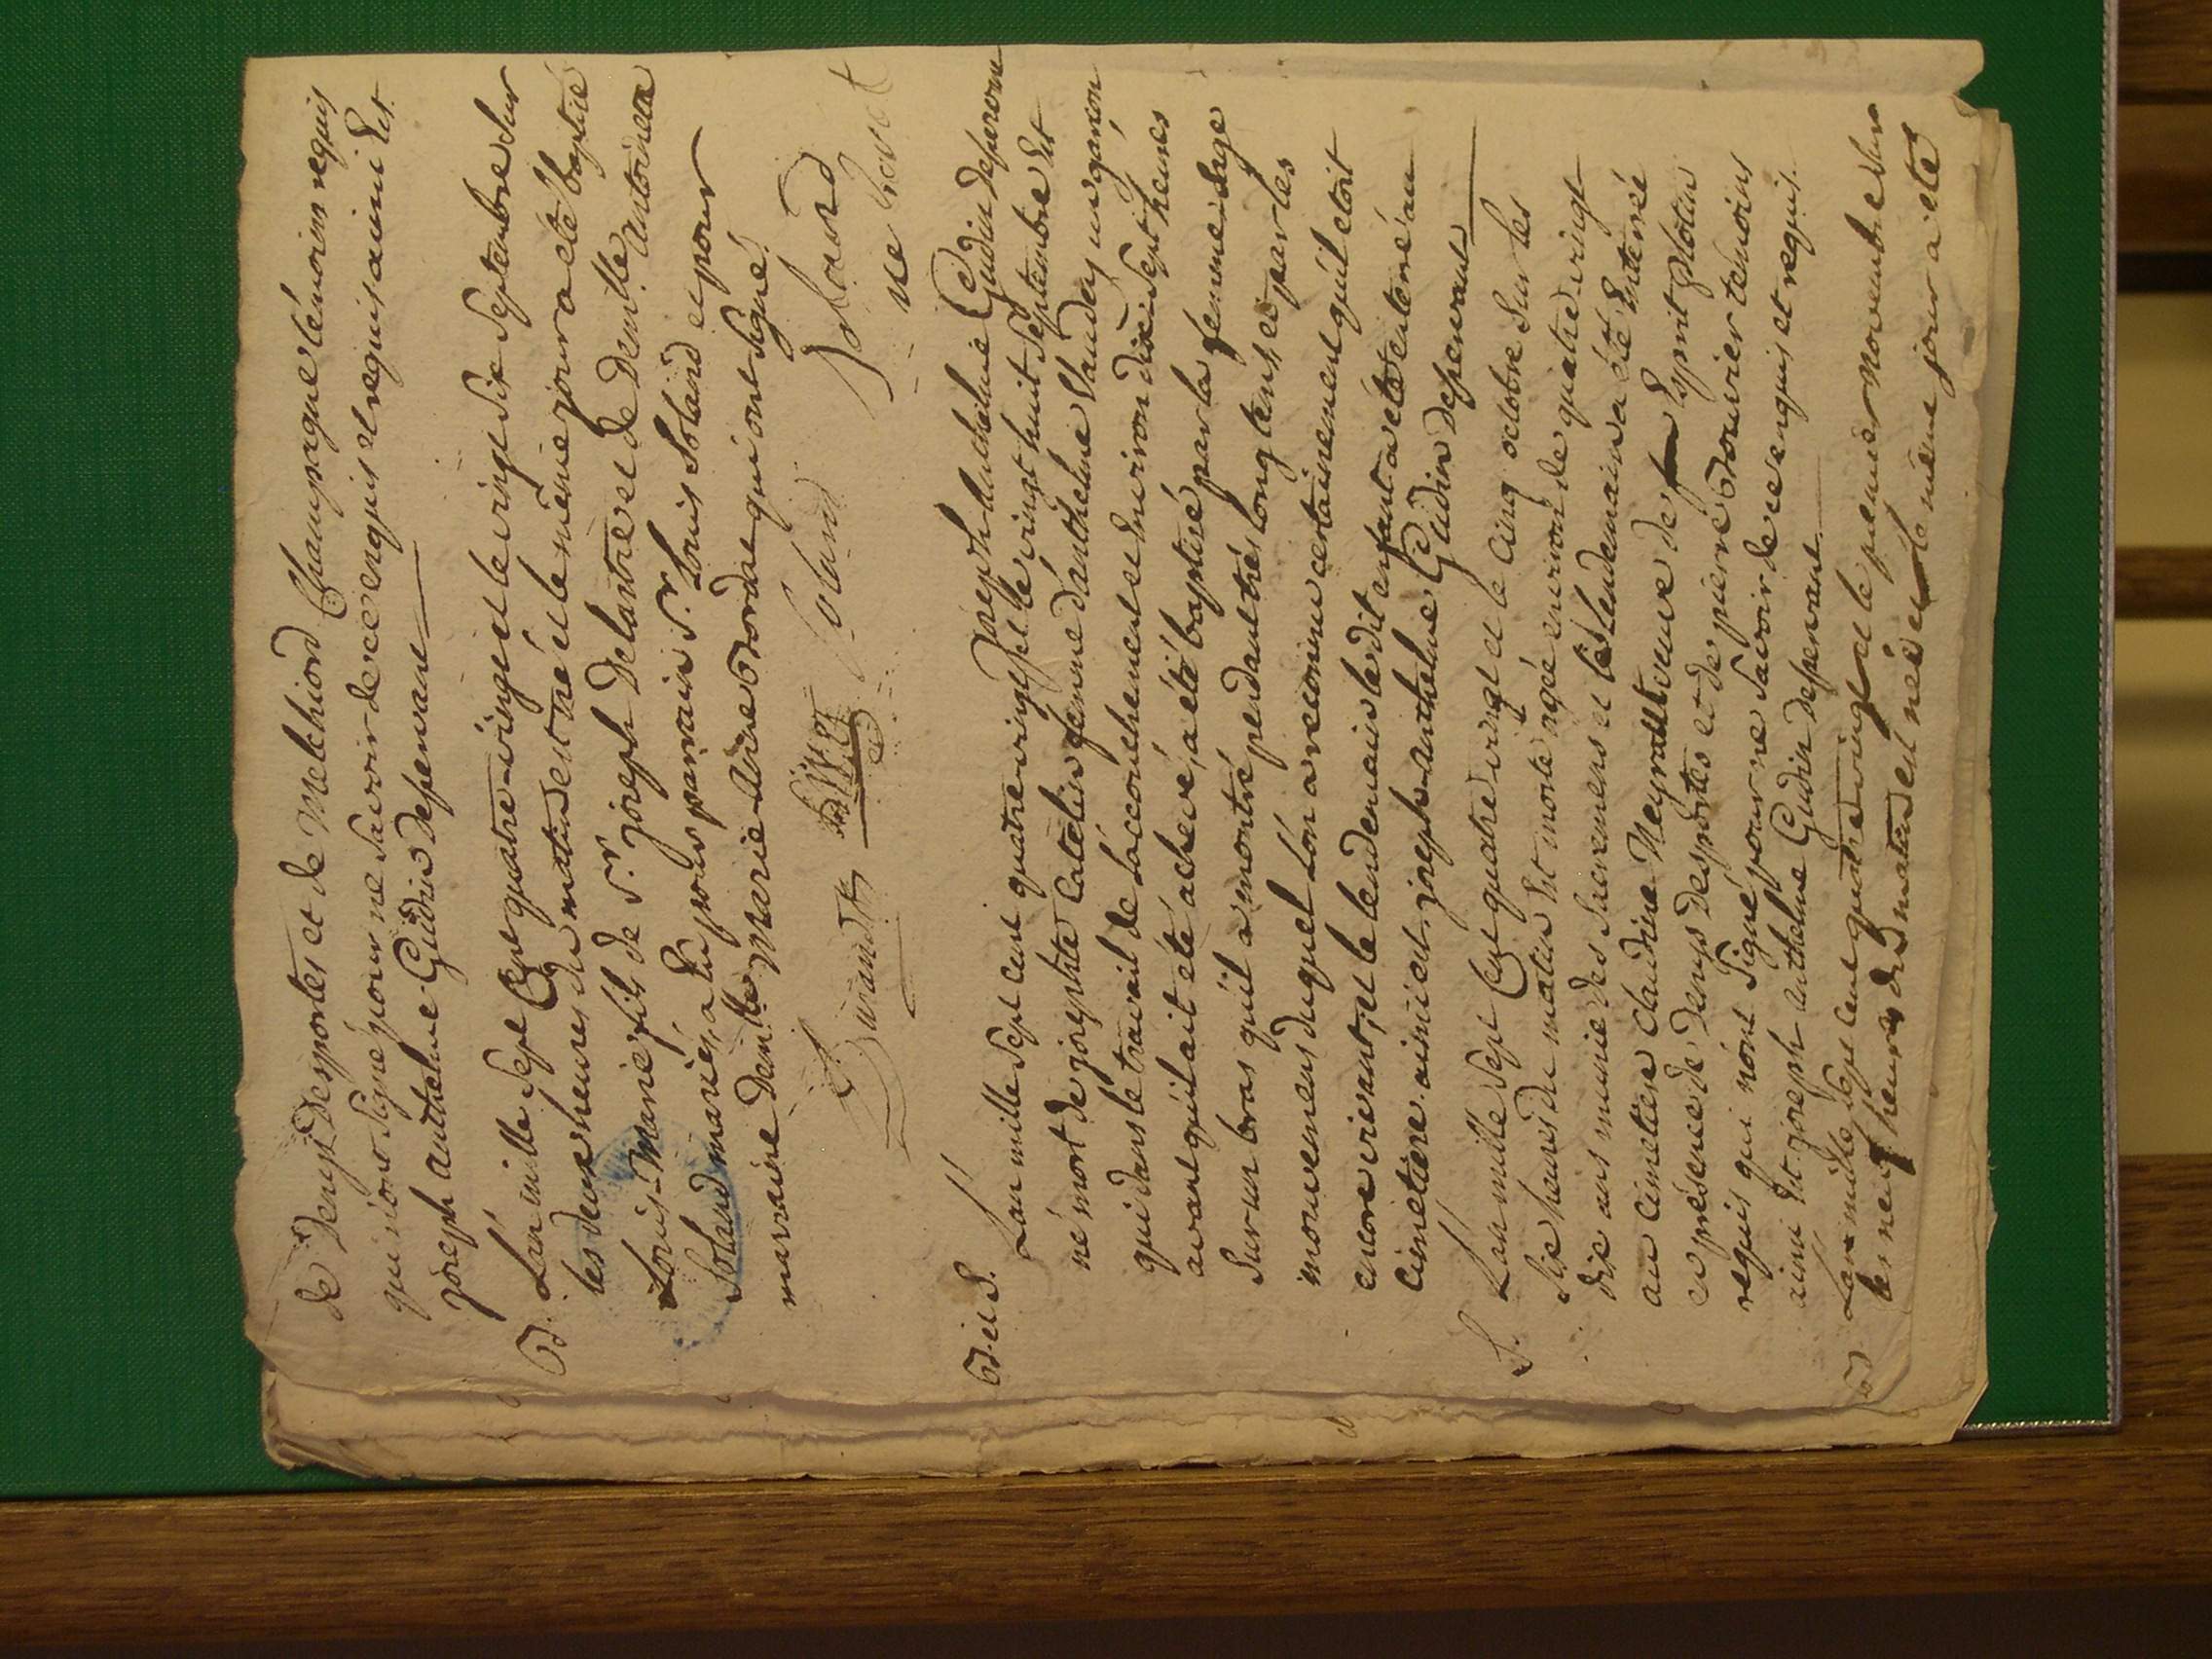 de Denys Desportes et de Melchiord Champagne témoins requis
qui n'ont signé pour ne savoir de ce enquis et requis ainsi est
joseph anthelme Gudin desservant
B. L'an mille sept Cent quatre-vingt et le vingt six septembre sur
les deux heures du matin est né et le même jour a été baptisé
Louis-Marie fils de S.r joseph Delantre et de Dem.lle antoinette
Solard mariés, a eu pour parrain S.r Louis Solard et pour
marraine Dem.lle Marie Aimé qui ont signé.
Solard
Solard
B. et S.
joseph anthelme Gudin desservant
L'an mille sept cent quatre vingt et le vingt huit septembre est
né mort de josephte Catelin femme d'anthelme un garçon
qui dans le travail de l'accouchement et environ dix-sept heures
avant qu'il ait été achevé, a été baptisé par la femme sage
sur un bras qu'il a montré pendant très long tems et par les
mouvemens duquel l'on a reconnu certainement qu'il étoit
encore vivant, et le lendemain le dit enfant a été enterré au
cimetière. ainsi est. joseph anthelme Gudin desservant
S. L'an mille sept Cent quatre vingt et le cinq octobre sur les
six heures du matin est morte agée environ de quatre vingt
dix ans munie des sacremens et le lendemain a été enterrée
au cimetière claudine veuve de Esprit
en présence de Denys Desportes et de pierre Bouvier témoins
requis qui n'ont signé pour ne savoir de ce enquis et requis.
ainsi est joseph anthelme Gudin desservant
B L'an mille sept cent quatre vingt et le premier novembre sur
les neuf heures du matin est né et le même jour a été